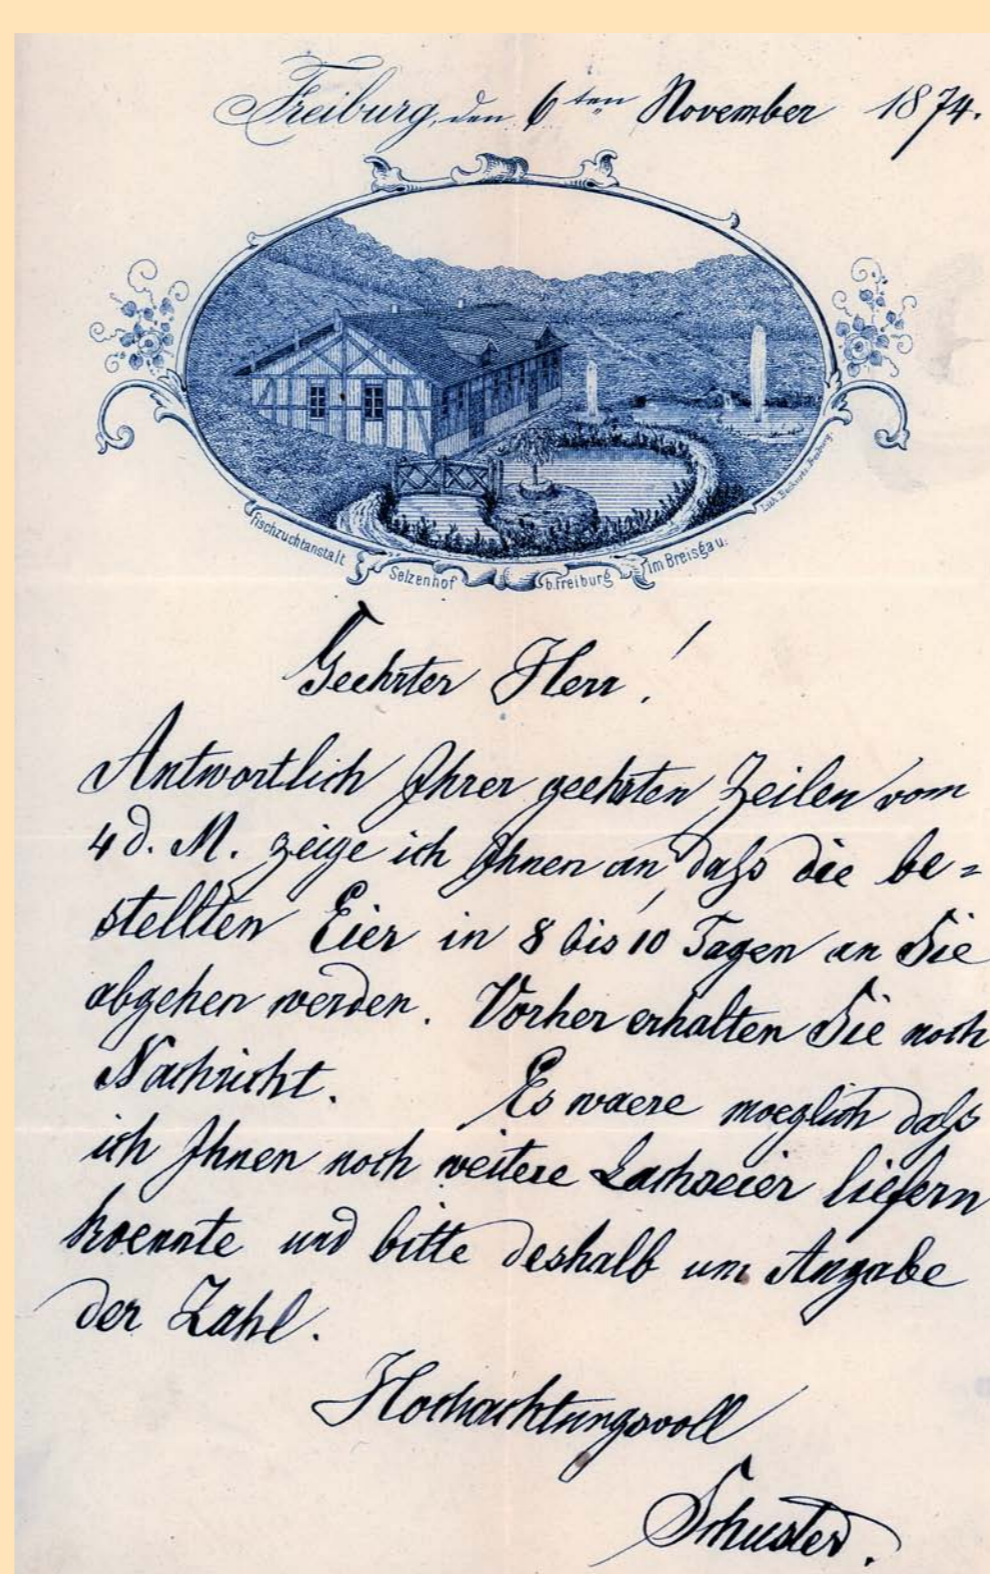 Freiburg, den 6ten November 1874.
Fischzuchtanstalt Selzenhof b. Freiburg im Breisgau.
Geehrter Herr!
Antwortlich Ihrer geehrten Zeilen vom
4 d. M. zeige ich Ihnen an, daſs die be=
stellten Eier in 8 bis 10 Tagen an Sie
abgehen werden. Vorher erhalten Sie noch
Nachricht. Es waere moeglich daſs
ich Ihnen noch weitere Lachseier liefern
koennte und bitte deshalb um Angabe
der Zahl.
Hochachtungsvoll
Schuster.